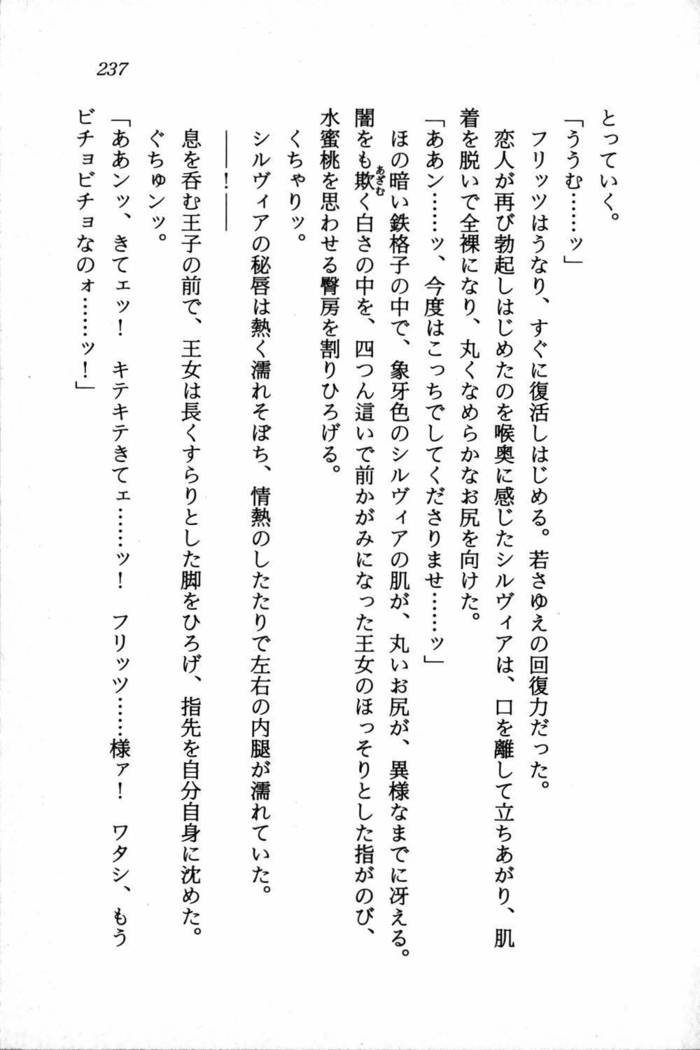 237
とっていく。
「ううむ……ッ」
フリッツはうなり、すぐに復活しはじめる。若さゆえの回復力だった。
恋人が再び勃起しはじめたのを喉奥に感じたシルヴィアは、口を離して立ちあがり、肌
着を脱いで全裸になり、丸くなめらかなお尻を向けた。
「ああン……ッ、今度はこっちでしてくださりませ……ッ」
ほの暗い鉄格子の中で、象牙色のシルヴィアの肌が、丸いお尻が、異様なまでに冴える。
闇をも欺く白さの中を、四つん這いで前かがみになった王女のほっそりとした指がのび、
あざむ
水蜜桃を思わせる臀房を割りひろげる。
くちゃりッ。
シルヴィアの秘唇は熱く濡れそぼち、情熱のしたたりで左右の内腿が濡れていた。
――！――
息を呑む王子の前で、王女は長くすらりとした脚をひろげ、指先を自分自身に沈めた。
ぐちゅンッ。
「ああンッ、きてェッ！　キテキテきてェ……ッ！　フリッツ……様ァ！　ワタシ、もう
ビチョビチョなのォ……ッ！」